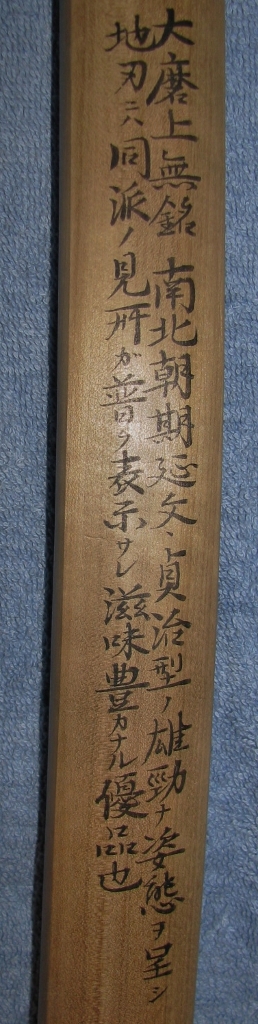 大磨上無銘 南北朝期延文、貞治型ノ雄勁ナ姿態ヲ呈シ
地刃ニハ同派ノ見所が普ク表示サレ滋味豊カナル優品也